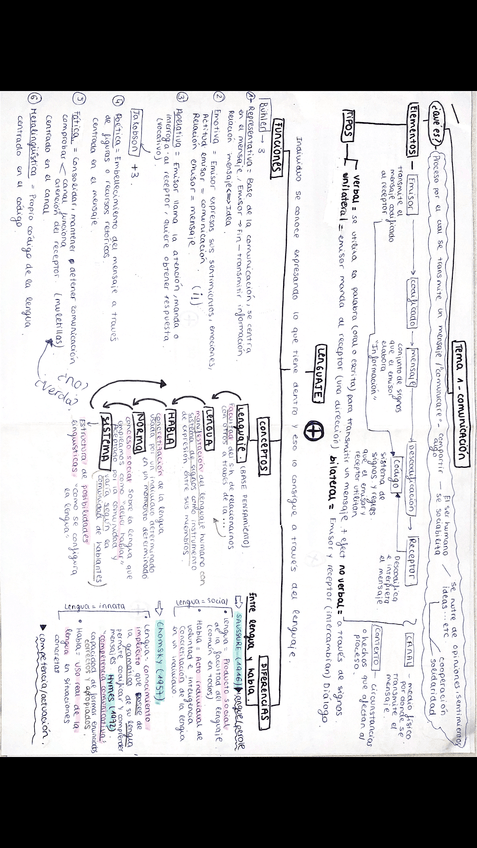 Tema 1 - comunicación
¿Qué es?
Proceso por el cual se transmite un mensaje / "comunicare" = compartir algo
El ser humano se sociabiliza
se nutre de opiniones, sentimientos, ideas... etc
cooperación
solidaridad
Elementos
Emisor
transmite el mensaje codificado al receptor
codificado
mensaje
conjunto de signos que el emisor elabora
"Información"
Descodificación
Código
sistema de signos y reglas que el emisor y receptor utilizan
Receptor
Descodifica e interpreta el mensaje
CANAL - medio físico por donde se transmite el mensaje
Contexto
Circunstancias o hechos que afectan al proceso.
TIPOS
verbal = se utiliza la palabra (oral o escrita) para transmitir un mensaje
no verbal = a través de signos
unilateral = emisor manda al receptor (una dirección)
bilateral = Emisor y receptor (intercambian) Diálogo
LENGUAJE
Individuo se conoce expresando lo que tiene dentro y eso lo consigue a través del lenguaje
Funciones
Bühler → 3
Representativa = Base de la comunicación, se centra
en el mensaje / Emisor → Fin - transmitir información
Relación mensaje ↔ Idea
② Emotiva = Emisor expresa sus sentimientos, emociones,
Actitud emisor = comunicación
Relación emisor = mensaje (¡!)
③ Apelativa = Emisor llama la atención, manda o
interroga al receptor, quiere obtener respuesta.
(vocativo)
Jakobson +3
④ Poética = Embellecimiento del mensaje a través
de figuras o recursos retóricos
centrada en el mensaje
⑤ Fática = consolidar, mantener o detener comunicación
comprobar canal funciona
atención del receptor (muletillas)
centrado en el canal
⑥ Metalingüística - Propio código de la lengua
centrado en el código
¿no?
¿verdad?
conceptos
Lenguaje (BASE PENSAMIENTO)
Facultad del s.h de relacionarnos
con otros a través de la
LENGUA
manifestación del lenguaje humano con
sistema de signos como instrumento
de expresión entre sus miembros
HABLA
concretización de la lengua
por un individuo determinado
en un momento determinado
NORMA
conces. social sobre la lengua que
empleamos como "saber hablar"
aceptado por la comunidad y
varía según la
comunidad de hablantes
SISTEMA
Estructura de posibilidades
lingüísticas: "como se configura
la lengua"
DIFERENCIAS
Entre lengua y habla
SAUSSURE (1916)
Lengua = social
• Lengua = Producto social
de la facultad del lenguaje
(común en todos)
• Habla = Acto individual de
voluntad e inteligencia
concretización de la lengua
en un individuo
Chomsky (1957)
Lengua = innata
• Lengua = conocimiento
implícito que posee de
la gramática de su lengua
permite codificar y comprender
mensajes Hymes (1972)
"competencia comunicativa"
capacidad de formar enunciados
correctos y apropiados.
• Habla: uso real de la
lengua en situaciones
concretas
competencia/actuación.